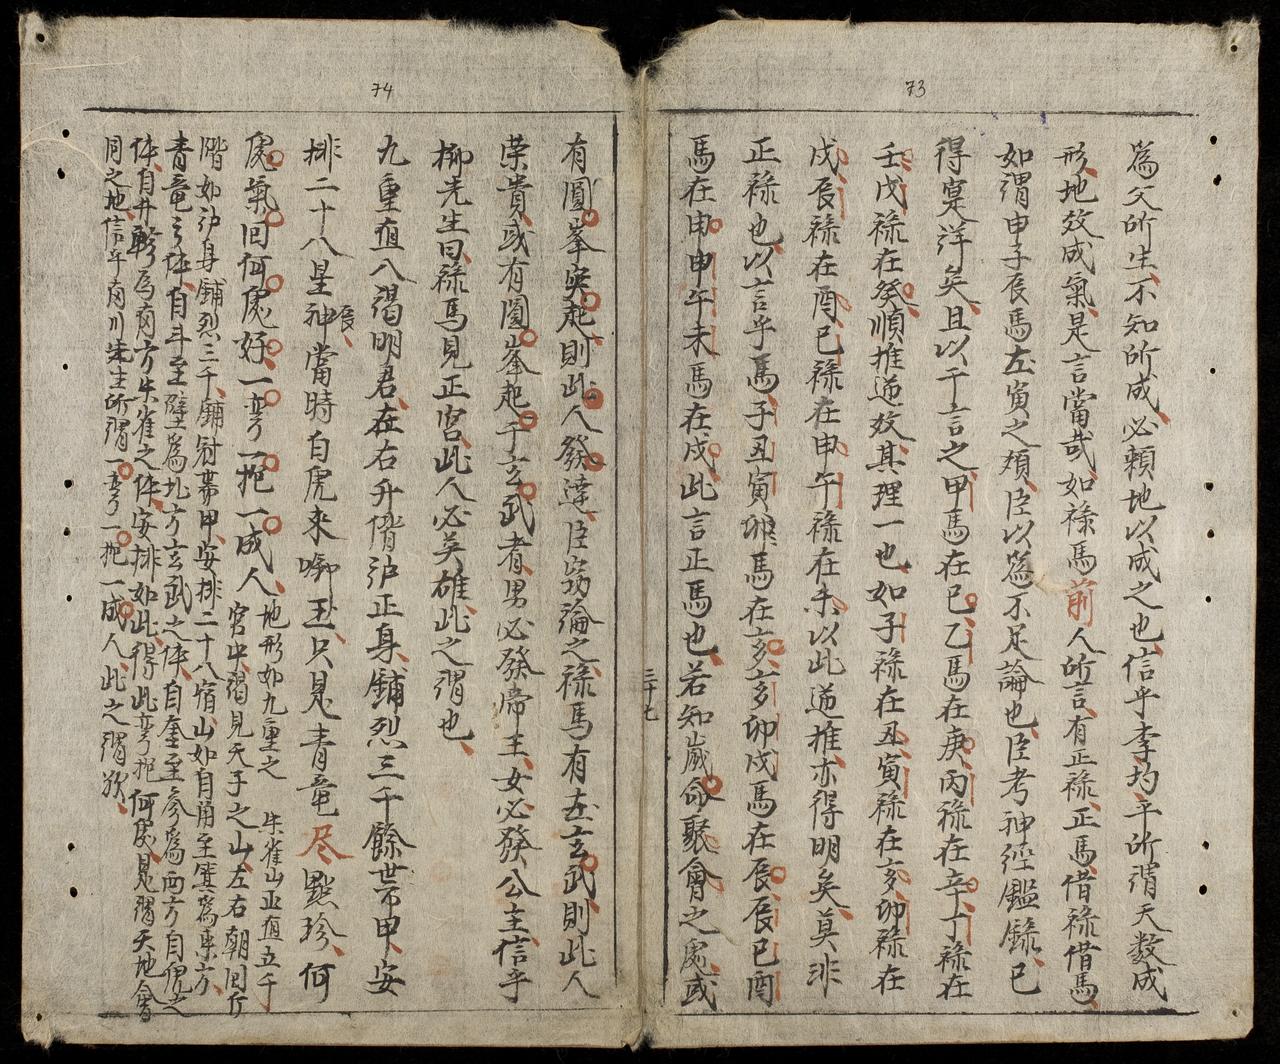 73
為父所生不知所成必賴地以成之也信乎李均平所謂天数成
形地效成氣是言當哉如祿馬前人所言有正祿正馬借祿借馬
如謂申子辰馬在寅之類臣以為不足論也臣考神經鑑錄已
得寔洋矣且以干言之甲馬在巳乙馬在庚丙祿在辛丁祿在
壬戊祿在癸順推逆效其理一也如子祿在丑寅祿在亥卯祿在
戌辰祿在酉巳祿在申午祿在未以此逆推亦得明矣莫非
正祿也以言乎馬子丑寅卯馬在亥亥卯戌馬在辰辰巳酉
馬在申申午未馬在戌此言正馬也若知歲命聚會之處或
三十七
74
有圓峯突起則此人發達臣窃論之祿馬有在玄武則此人
荣貴或有圓峯起于玄武者男必發帝王女必發公主信乎
柳先生曰祿馬見正宮此人必英雄此之謂也
九重直八谒明君在右升僭沪正身鋪烈三千餘冑甲安
排二十八星神辰當時白虎來啣玉只見青竜尽點珍何
處氣囙何處好一弯一抱一成人地形如九重之宮中谒見天子之山左右朝囙行
朱雀山正直五千
階如沪身鋪烈三千鋪冑甲安排二十八宿山如自角至箕為東方
青竜之体自斗至壁為北方玄武之体自奎至参為西方白虎之
体自井軫為南方朱雀之体安排如此得此弯抱何處見谓天地會
同之地信乎南川先生所謂一弯一抱一成人此之謂欤